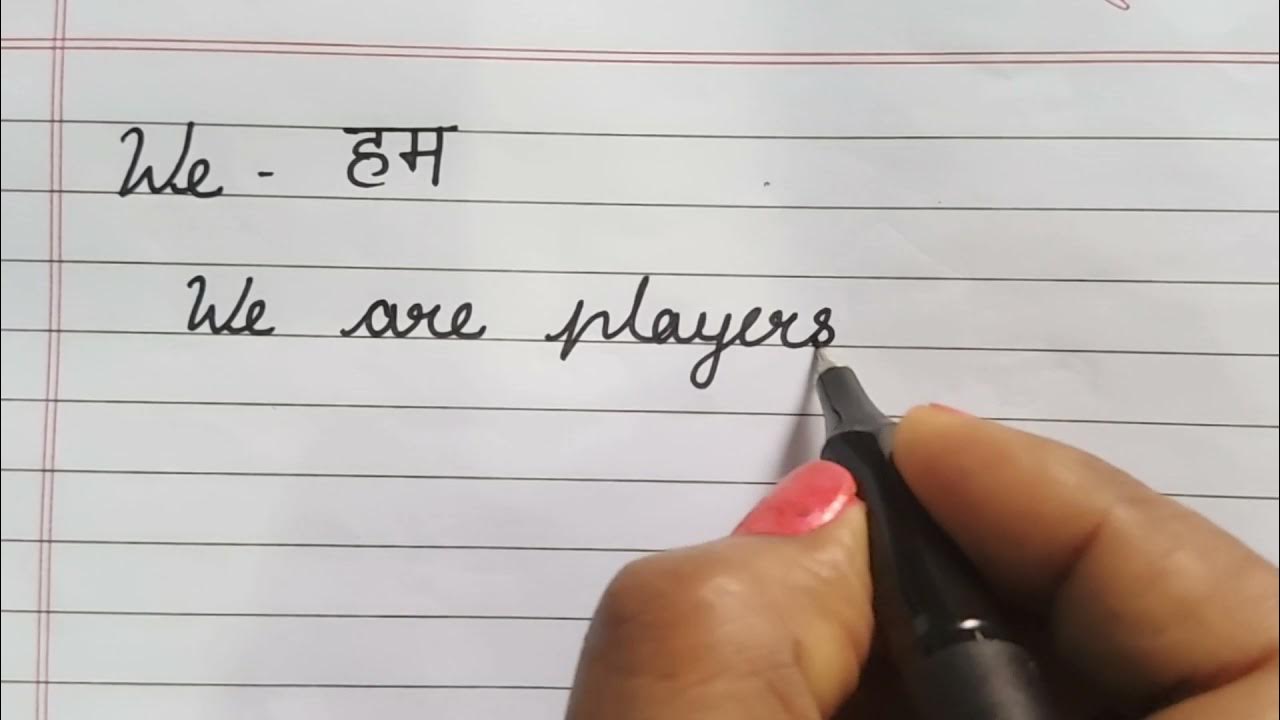 We - हम
We are players